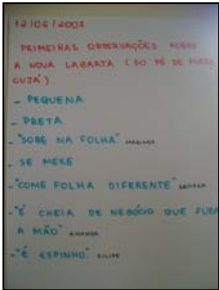 12/06/2007
PRIMEIRAS OBSERVAÇÕES SOBRE
A NOVA LAGARTA (DO PÉ DE MARA
CUJÁ)
- PEQUENA
- PRETA
- "SOBE NA FOLHA" MARIANA
- SE MEXE
- "COME FOLHA DIFERENTE"
- "É CHEIA DE NEGÓCIO QUE FURA
A MÃO" AMANDA
- "É ESPINHO" FILIPE